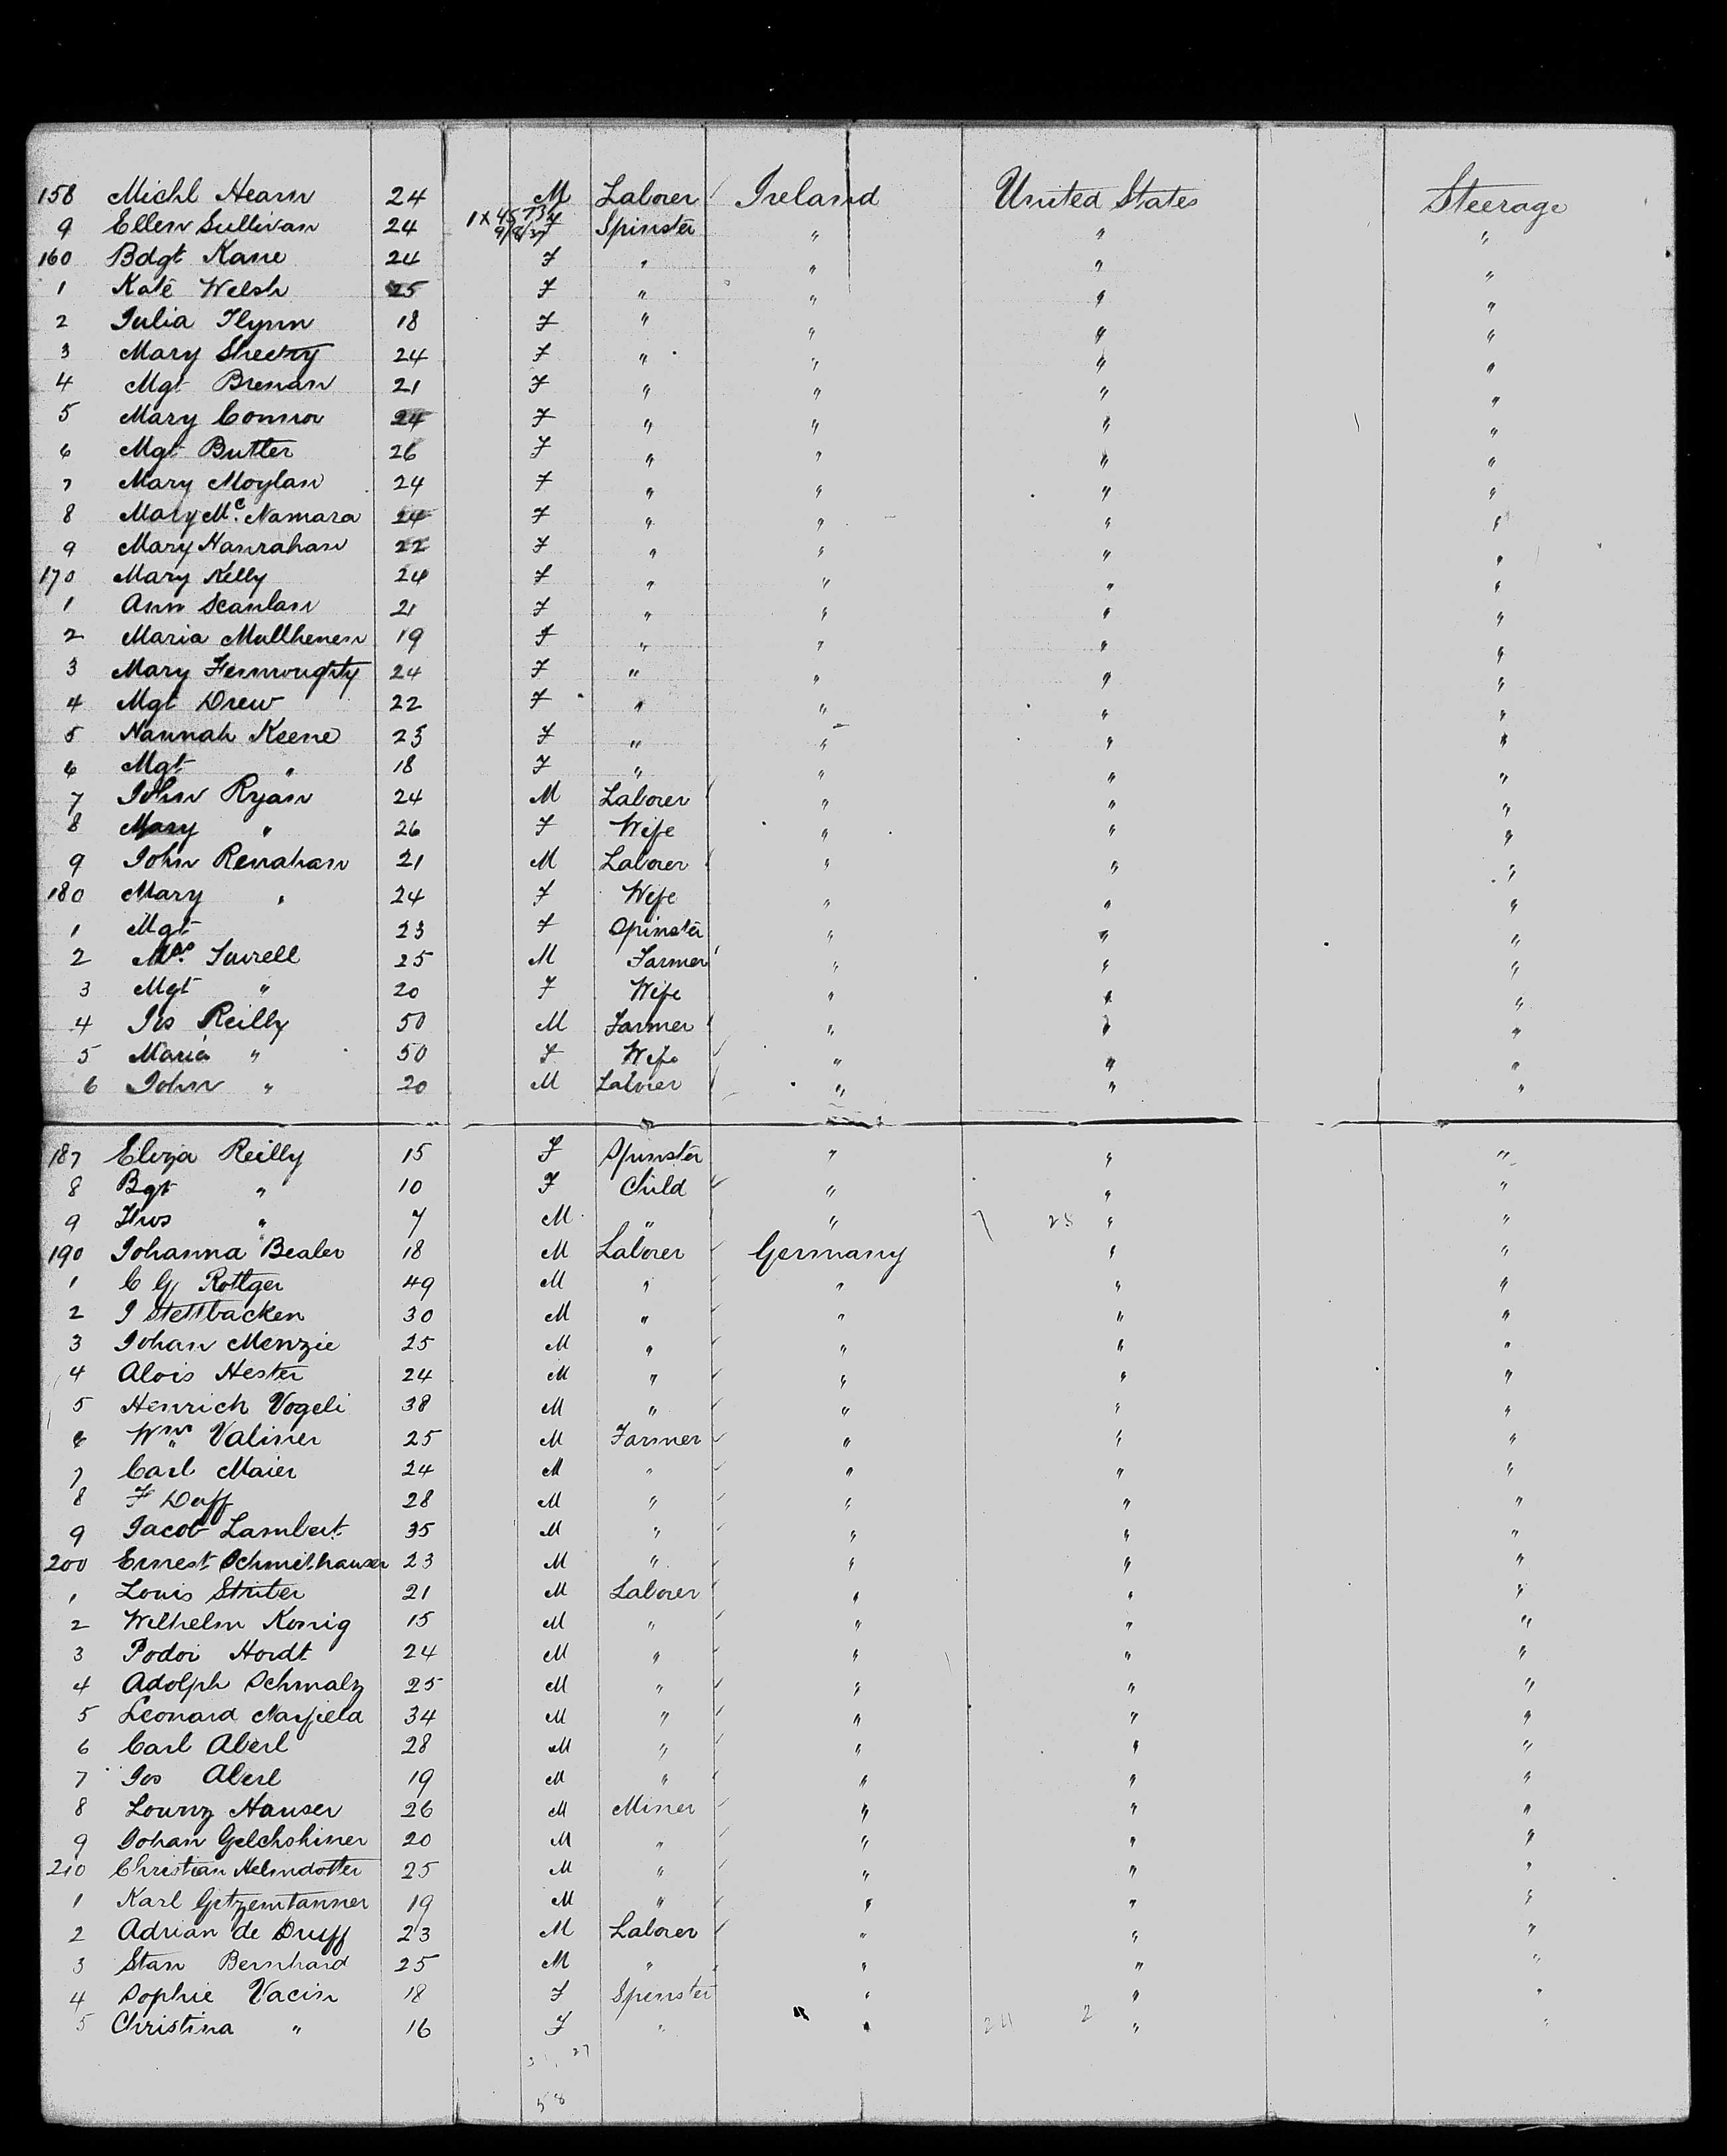 158 Michl Hearn 24 M Laborer Ireland United States Steerage
9 Ellen Sullivan 24 F Spinster " " "
160 Bdgt Kane 24 F " " " "
1 Kate Welsh 25 F " " " "
2 Julia Flynn 18 F " " " "
3 Mary Sheehy 24 F " " " "
4 Mgt Brenan 21 F " " " "
5 Mary Connor 24 F " " " "
6 Mgt Butler 26 F " " " "
7 Mary Moylan 24 F " " " "
8 Mary Mc. Namara 24 F " " " "
9 Mary Hanrahan 22 F " " " "
170 Mary Kelly 24 F " " " "
1 Ann Scanlan 21 F " " " "
2 Maria Mullhenen 19 F " " " "
3 Mary 24 F " " " "
4 Mgt Drew 22 F " " " "
5 Hannah Keene 23 F " " " "
6 Mgt " 18 F " " " "
7 John Ryan 24 M Laborer " " "
8 Mary " 26 F Wife " " "
9 John Renahan 21 M Laborer " " "
180 Mary " 24 F Wife " " "
1 Mgt 23 F Spinster " " "
2 25 M Farmer " " "
3 Mgt " 20 F Wife " " "
4 Jas Reilly 50 M Farmer " " "
5 Maria " 50 F Wife " " "
6 John " 20 M Laborer " " "
187 Eliza Reilly 15 F Spinster " " "
8 Bgt " 10 F Child " " "
9 Thos " 7 M " " " "
190 Johanna Bealer 18 M Laborer Germany " "
1 C G Rottger 49 M " " " "
2 J Stettbacken 30 M " " " "
3 Johan Menzie 25 M " " " "
4 Alois Hester 24 M " " " "
5 Henrich Vogeli 38 M " " " "
6 Wm Valiner 25 M Farmer " " "
7 Carl Maier 24 M " " " "
8 F Duff 28 M " " " "
9 Jacob Lambert 35 M " " " "
200 Ernest Schmithauser 23 M " " " "
1 Louis Striter 21 M Laborer " " "
2 Wilhelm Konig 15 M " " " "
3 Podoi Hordt 24 M " " " "
4 Adolph Schmalz 25 M " " " "
5 Leonard Nayfield 34 M " " " "
6 Carl Aberl 28 M " " " "
7 Jos Aberl 19 M " " " "
8 Lounz Hauser 26 M Miner " " "
9 Johan Gelchshiner 20 M " " " "
210 Christian Helmdotter 25 M " " " "
1 Karl Getzemtanner 19 M " " " "
2 Adrian de Druff 23 M Laborer " " "
3 Stan Bernhard 25 M " " " "
4 Sophie Vacin 18 F Spenster " " "
5 Christina " 16 F " " " "
58